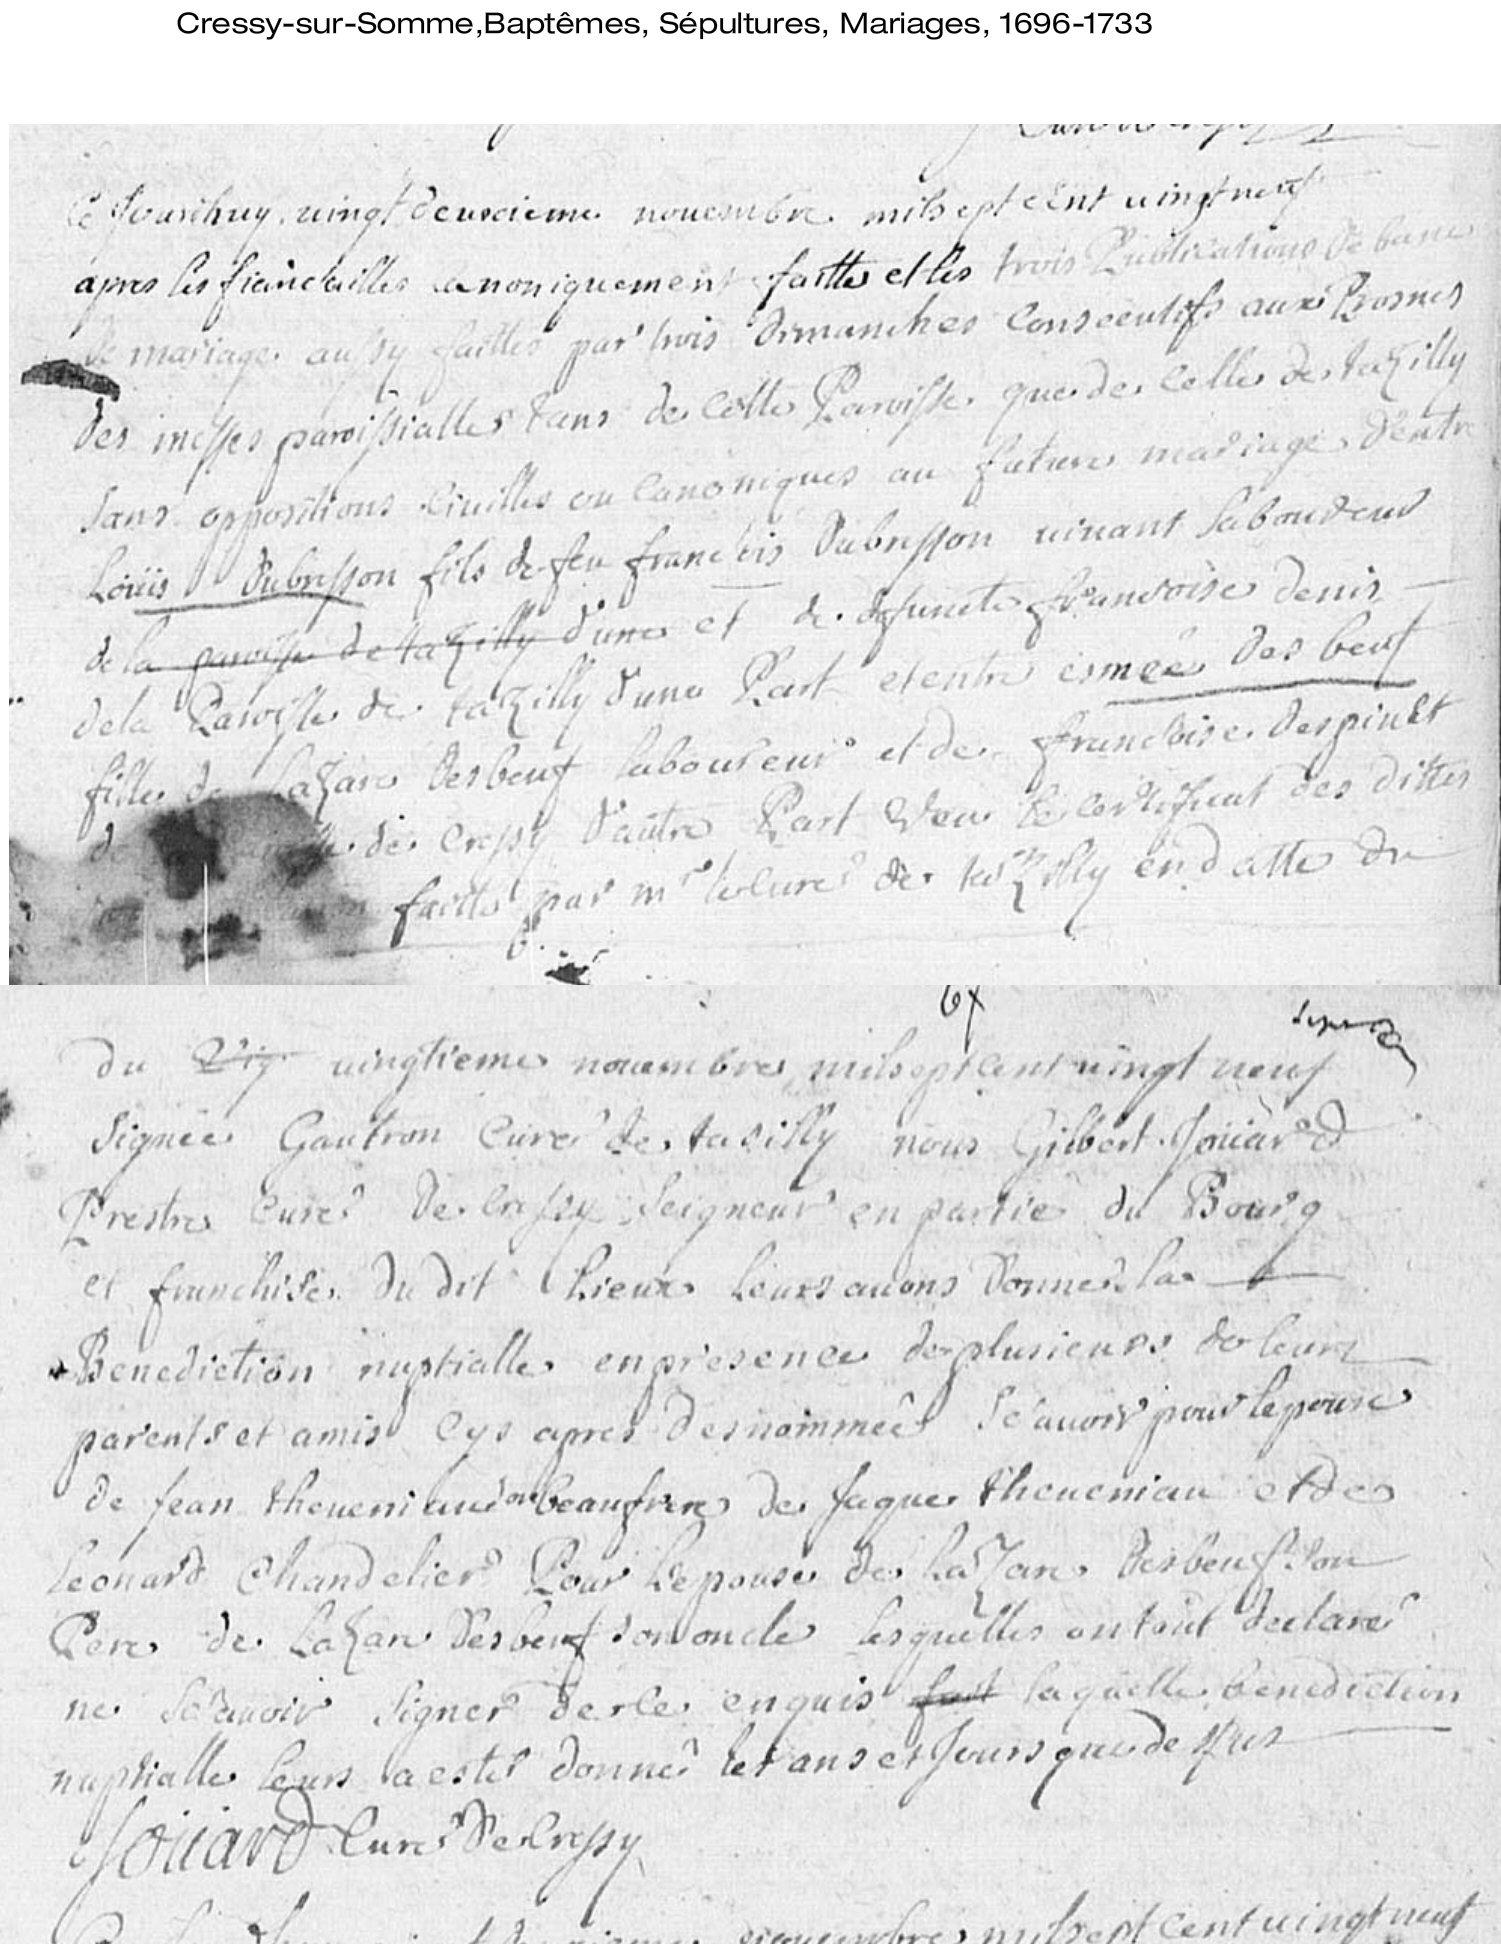 Cressy-sur-Somme,Baptêmes, Sépultures, Mariages, 1696-1733
Ce Jourdhuy vingt deuxieme nouembre mil sept cent uingt neuf
apres les fiancailles canoniquement faitte et les trois Publications de banc
de mariage aussy faittes par trois dimanches Consecutifs aux Prosnes
des messes paroissialles tans de Cette Paroisse que de Celle de taZilly
sans oppositions Ciuilles ou Canoniques au future mariage d'entre
Loüis dubresson fils de feu francois dubresson uiuant laboureur
de la paroisse de taZilly d'une et de defuncte francoise denis
de la Paroisse de taZilly d'une Part et entre esmée des beuf
fille de LaZare desbeuf laboureur et de francoise despinet
de Cressy d'autre Part Veu le Certificat des dittes
faitte par mr le Curé de taZilly en datte du
du uingtieme nouembre mil sept Cent uingt neuf
Signée Gautron Curé de tasilly nous Gilbert Joüard
Prestre Curé de Cressy Seigneur en partie du Bourg
et franchise du dit Lieux Leurs auons donné la
Benediction nuptialle en presence de plusieurs de leurs
parents et amis Cys apres desnommeé Scauoir pour lepoux
de Jean theueniau son beaufrere de Jaque theueniau et de
Leonard Chandelier Pour Lepouse de LaZare desbeuf son
Pere de LaZare desbeuf son oncle lesquelles ont out declaré
ne Scauoir Signer de ce enquis fait laquelle benediction
nuptialle Leurs a esté donné les ans et Jours que dessus
Joüard Curé De Cressy
nouembre mil sept Cent uingt neuf